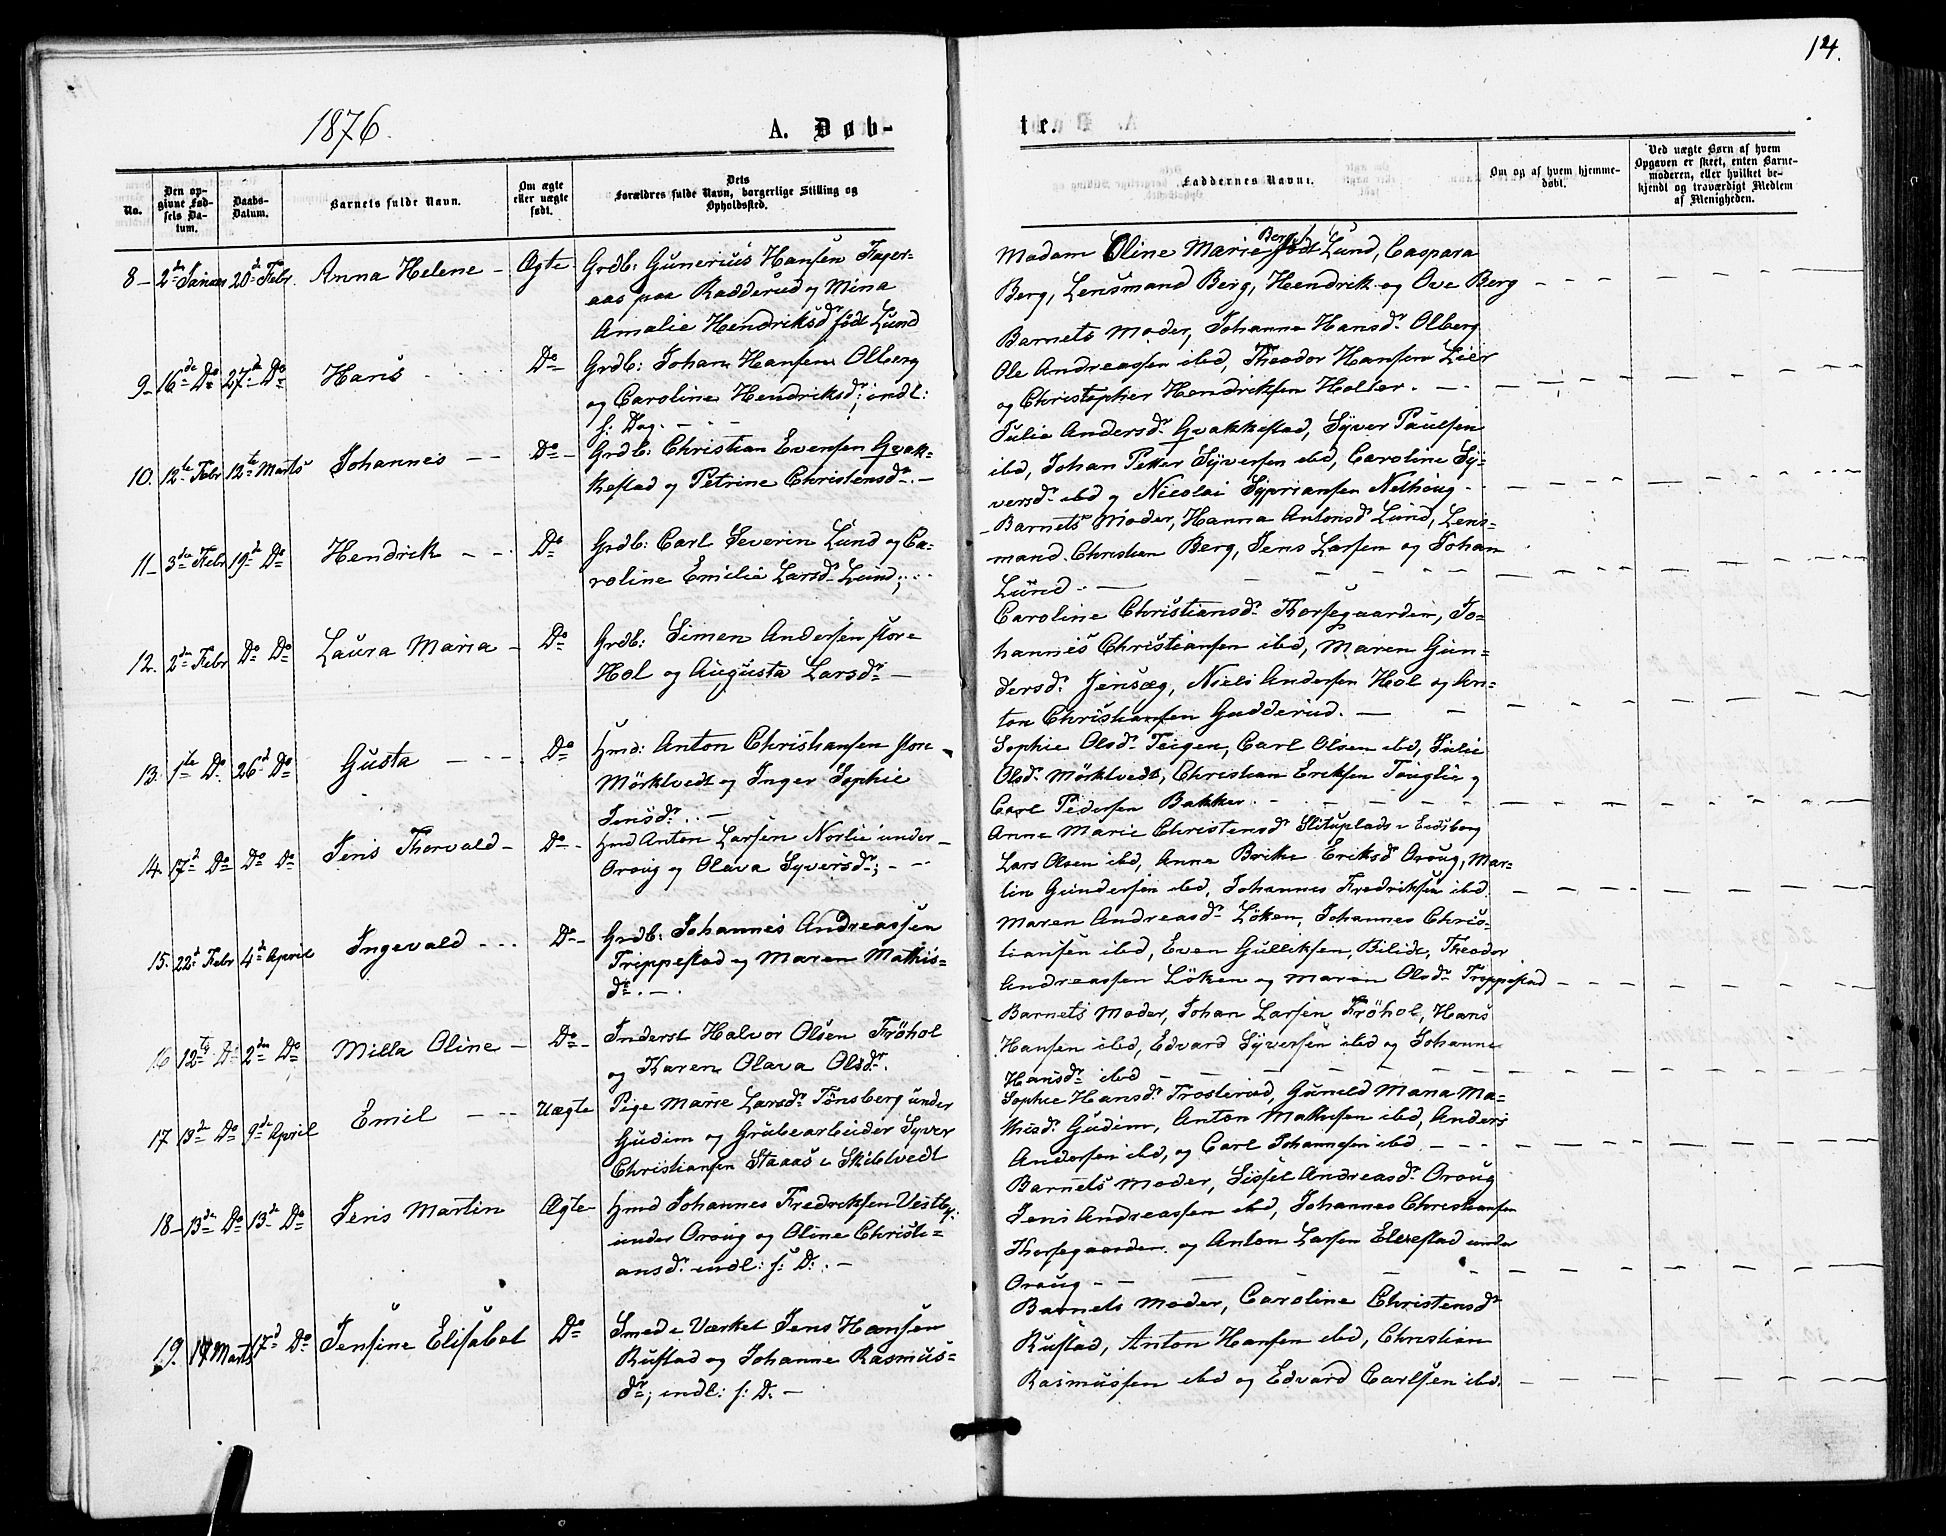 14.
1876.
A. Døb-
te.
No.
Den op-
givne Fød-
sels Da-
tum.
Daabs-
Datum.
Barnets fulde Navn.
Om ægte
eller uægte
født.
Dets
Forældres fulde Navn, borgerlige Stilling og
Opholdssted.
Faddernes Navne.
Om og af hvem hjemme-
døbt.
Ved uægte Børn af hvem
Opgaven er skeet, enten Barne-
moderen, eller hvilket be-
kjendt og troværdigt Medlem
af Menigheden.
8 2de Januar 20de Febr. Anna Helene Ægte
Grdb: Gunerius Hansen Fager-
aas paa Radderud og Mina
Amalie Hendriksdr født Lund
Madam Oline Marie Berg født Lund, Caspara
Berg, Lensmand Berg, Hendrik og Ove Berg
9 16de Do 27de Do Hans Do
Grdb: Johan Hansen Olberg
og Caroline Hendriksdr; indl:
s: Dag.
Barnets Moder, Johanne Hansdr Olberg
Ole Andreassen ibd, Theodor Hansen Lier
og Christopher Hendriksen Holter.
10. 12te Febr 12te Marts Johannes Do
Grdb: Christian Evensen Gvak-
kestad og Petrine Christensdr.
Julie Andersdr Gvakkestad, Syver Paulsen
ibd, Johan Petter Syversen ibd, Caroline Sy-
versdr ibd og Nicolai Sypriansen Nethoug
11 3de Febr 19de Do Hendrik Do
Grdb: Carl Severin Lund og Ca-
roline Emilie Larsdr Lund;
Barnets Moder, Hanna Antonsdr Lund, Lens-
mand Christian Berg, Jens Larsen og Johan
Lund.
12. 2de Febr Do Do Laura Maria Do
Grdb: Simen Andersen store
Hol og Augusta Larsdr
Caroline Christiansdr Korsegaarden, Jo-
hannes Christiansen ibd, Maren Gun-
dersdr Jensæg, Niels Andersen Hol og An-
ton Christiansen Gudderud.
13. 1te Do 26de Do Gusta Do
Hmd: Anton Christiansen store
Mörktvedt og Inger Sophie
Jensdr.
Sophie Olsdr Teigen, Carl Olsen ibd, Julie
Olsdr Mörktvedt, Christian Eriksen Touglie og
Carl Pedersen Bakker.
14. 17d Do Do Do Jens Thorvald Do
Hmd Anton Larsen Norlie under
Oroug og Olava Syversdr;
Anne Marie Christensdr Slituplads i Eidsberg
Lars Olsen ibd, Anne Brike Eriksdr Oroug, Mar-
tin Gundersen ibd, Johannes Fredriksen ibd.
15. 22d Febr 4de April Ingevald Do
Grdb: Johannes Andreassen
Trippestad og Maren Mathis-
dr.
Maren Andreasdr Löken, Johannes Chris-
tiansen ibd, Even Gulliksen, Bilidt, Theodor
Andreassen Löken og Maren Olsdr Trippestad
16 12te Do 2den Do Milla Oline Do
Inderst Halvor Olsen Fröhol
og Karen Olava Olsdr.
Barnets Moder, Johan Larsen Fröhol, Hans
Hansen ibd, Edvard Syversen ibd og Johanne
Hansdr ibd
17 13de Do 9de April Emil Uægte
Pige Marie Larsdr Tönsberg under
Gudim og Grubearbeider Syver
Christiansen Staaas i Skibtvedt
Sophie Hansdr Trosterud, Gunild Maria Ma-
thisdr Gudim, Anton Mathisen ibd, Anders
Andersen ibd, og Carl Johannesen ibd
18 13de Do 13de Do Jens Martin Ægte
Hmd Johannes Fredriksen Vestby
under Oroug og Oline Christi-
ansdr indl: s: D:
Barnets Moder, Sissel Andreasdr Oroug
Jens Andreassen ibd, Johannes Christiansen
Korsegaarden og Anton Larsen Ellestad under
Oroug
19. 17 Marts 17d Do Jensine Elisabet Do
Smed i Værket Jens Hansen
Rustad og Johanne Rasmus-
dr; indl: s: D.
Barnets Moder, Caroline Christensdr
Rustad, Anton Hansen ibd, Christian
Rasmussen ibd og Edvard Carlsen ibd.